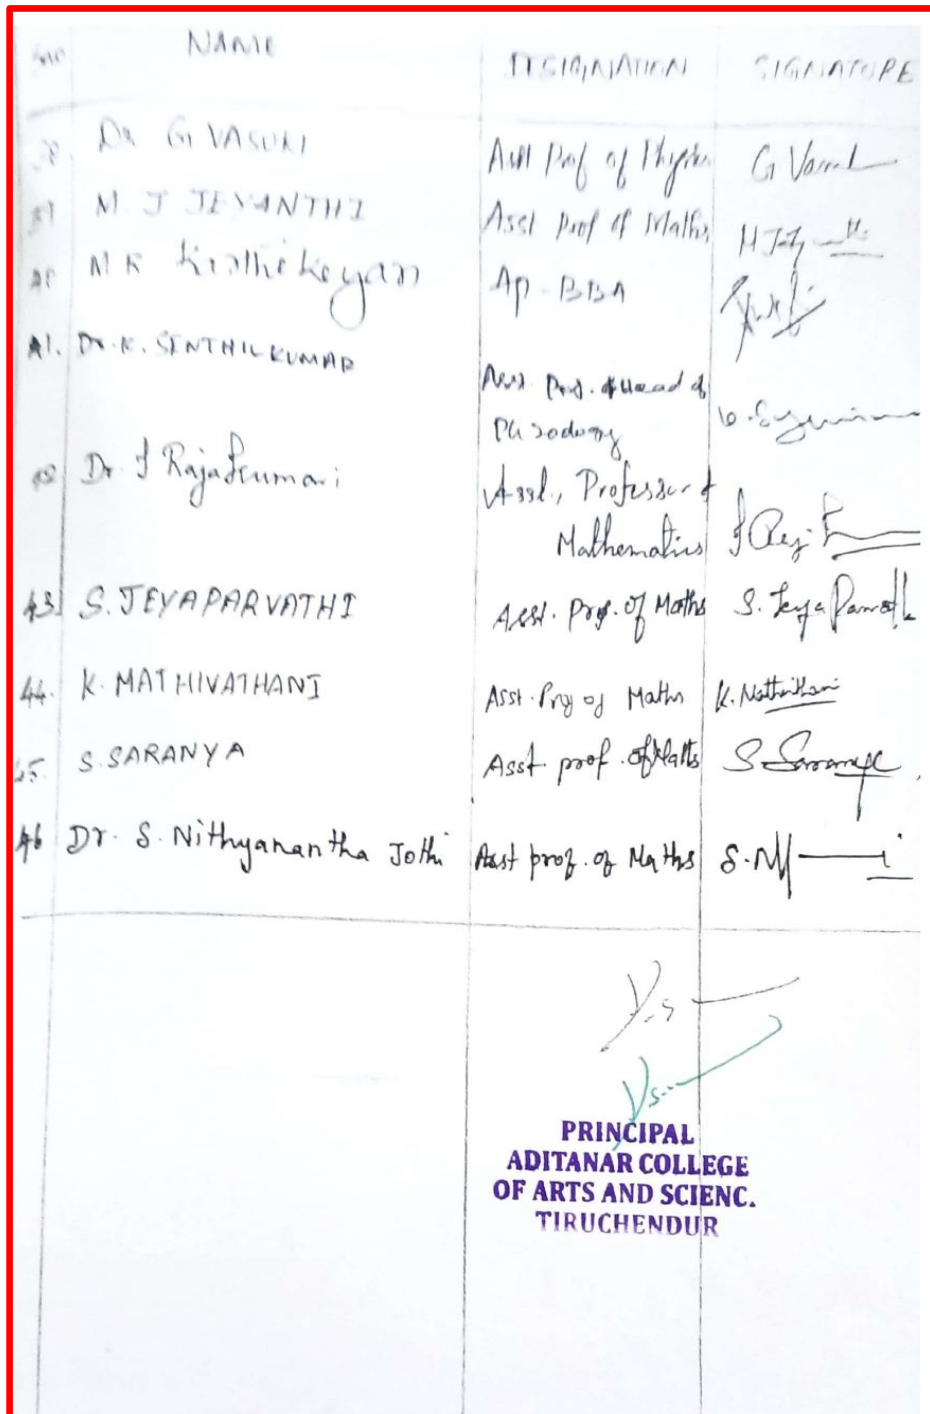 S.no NAME DESIGNATION SIGNATURE
38. Dr G VASUKI Asst Prof of Physics G Vasuk
39 M. J JEYANTHI Asst Prof of Maths
40 M R Karthikeyan Ap - BBA
41. Dr. K. SENTHIL KUMAR Asst. Prof. & Head of
PG Zoology
42 Dr. J Rajakumari Asst., Professor of
Mathematics
43. S. JEYAPARVATHI Asst. Prof. of Maths S. JeyaParvath
44. K. MATHIVATHANI Asst. Prof of Maths K. Mathivathani
45. S. SARANYA Asst. prof. of Maths S. Saranya
46 Dr. S. Nithyanantha Jothi Asst prof. of Maths
PRINCIPAL
ADITANAR COLLEGE
OF ARTS AND SCIENC.
TIRUCHENDUR